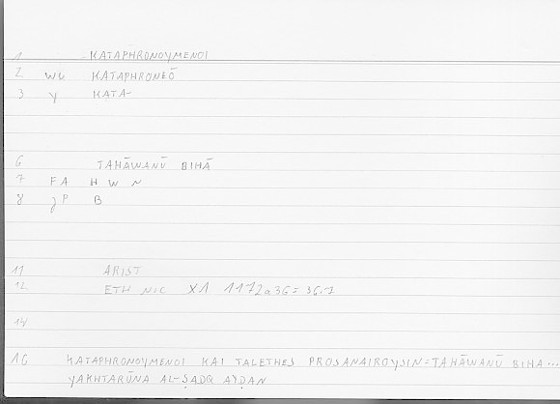 1 KATAPHRONOYMENOI
2 wb KATAPHRONEŌ
3 y KATA-
6 TAHĀWANŪ BIHĀ
7 FA H W N
8 P B
11 ARIST
12 ETH NIC X1 1172a36 =
14
16 KATAPHRONOYMENOI KAI TALETHES PROSANAIROYSIN=TAHĀWANŪ BIHA...
YAKHTARŪNA AL-ṢADQ AYḌAN